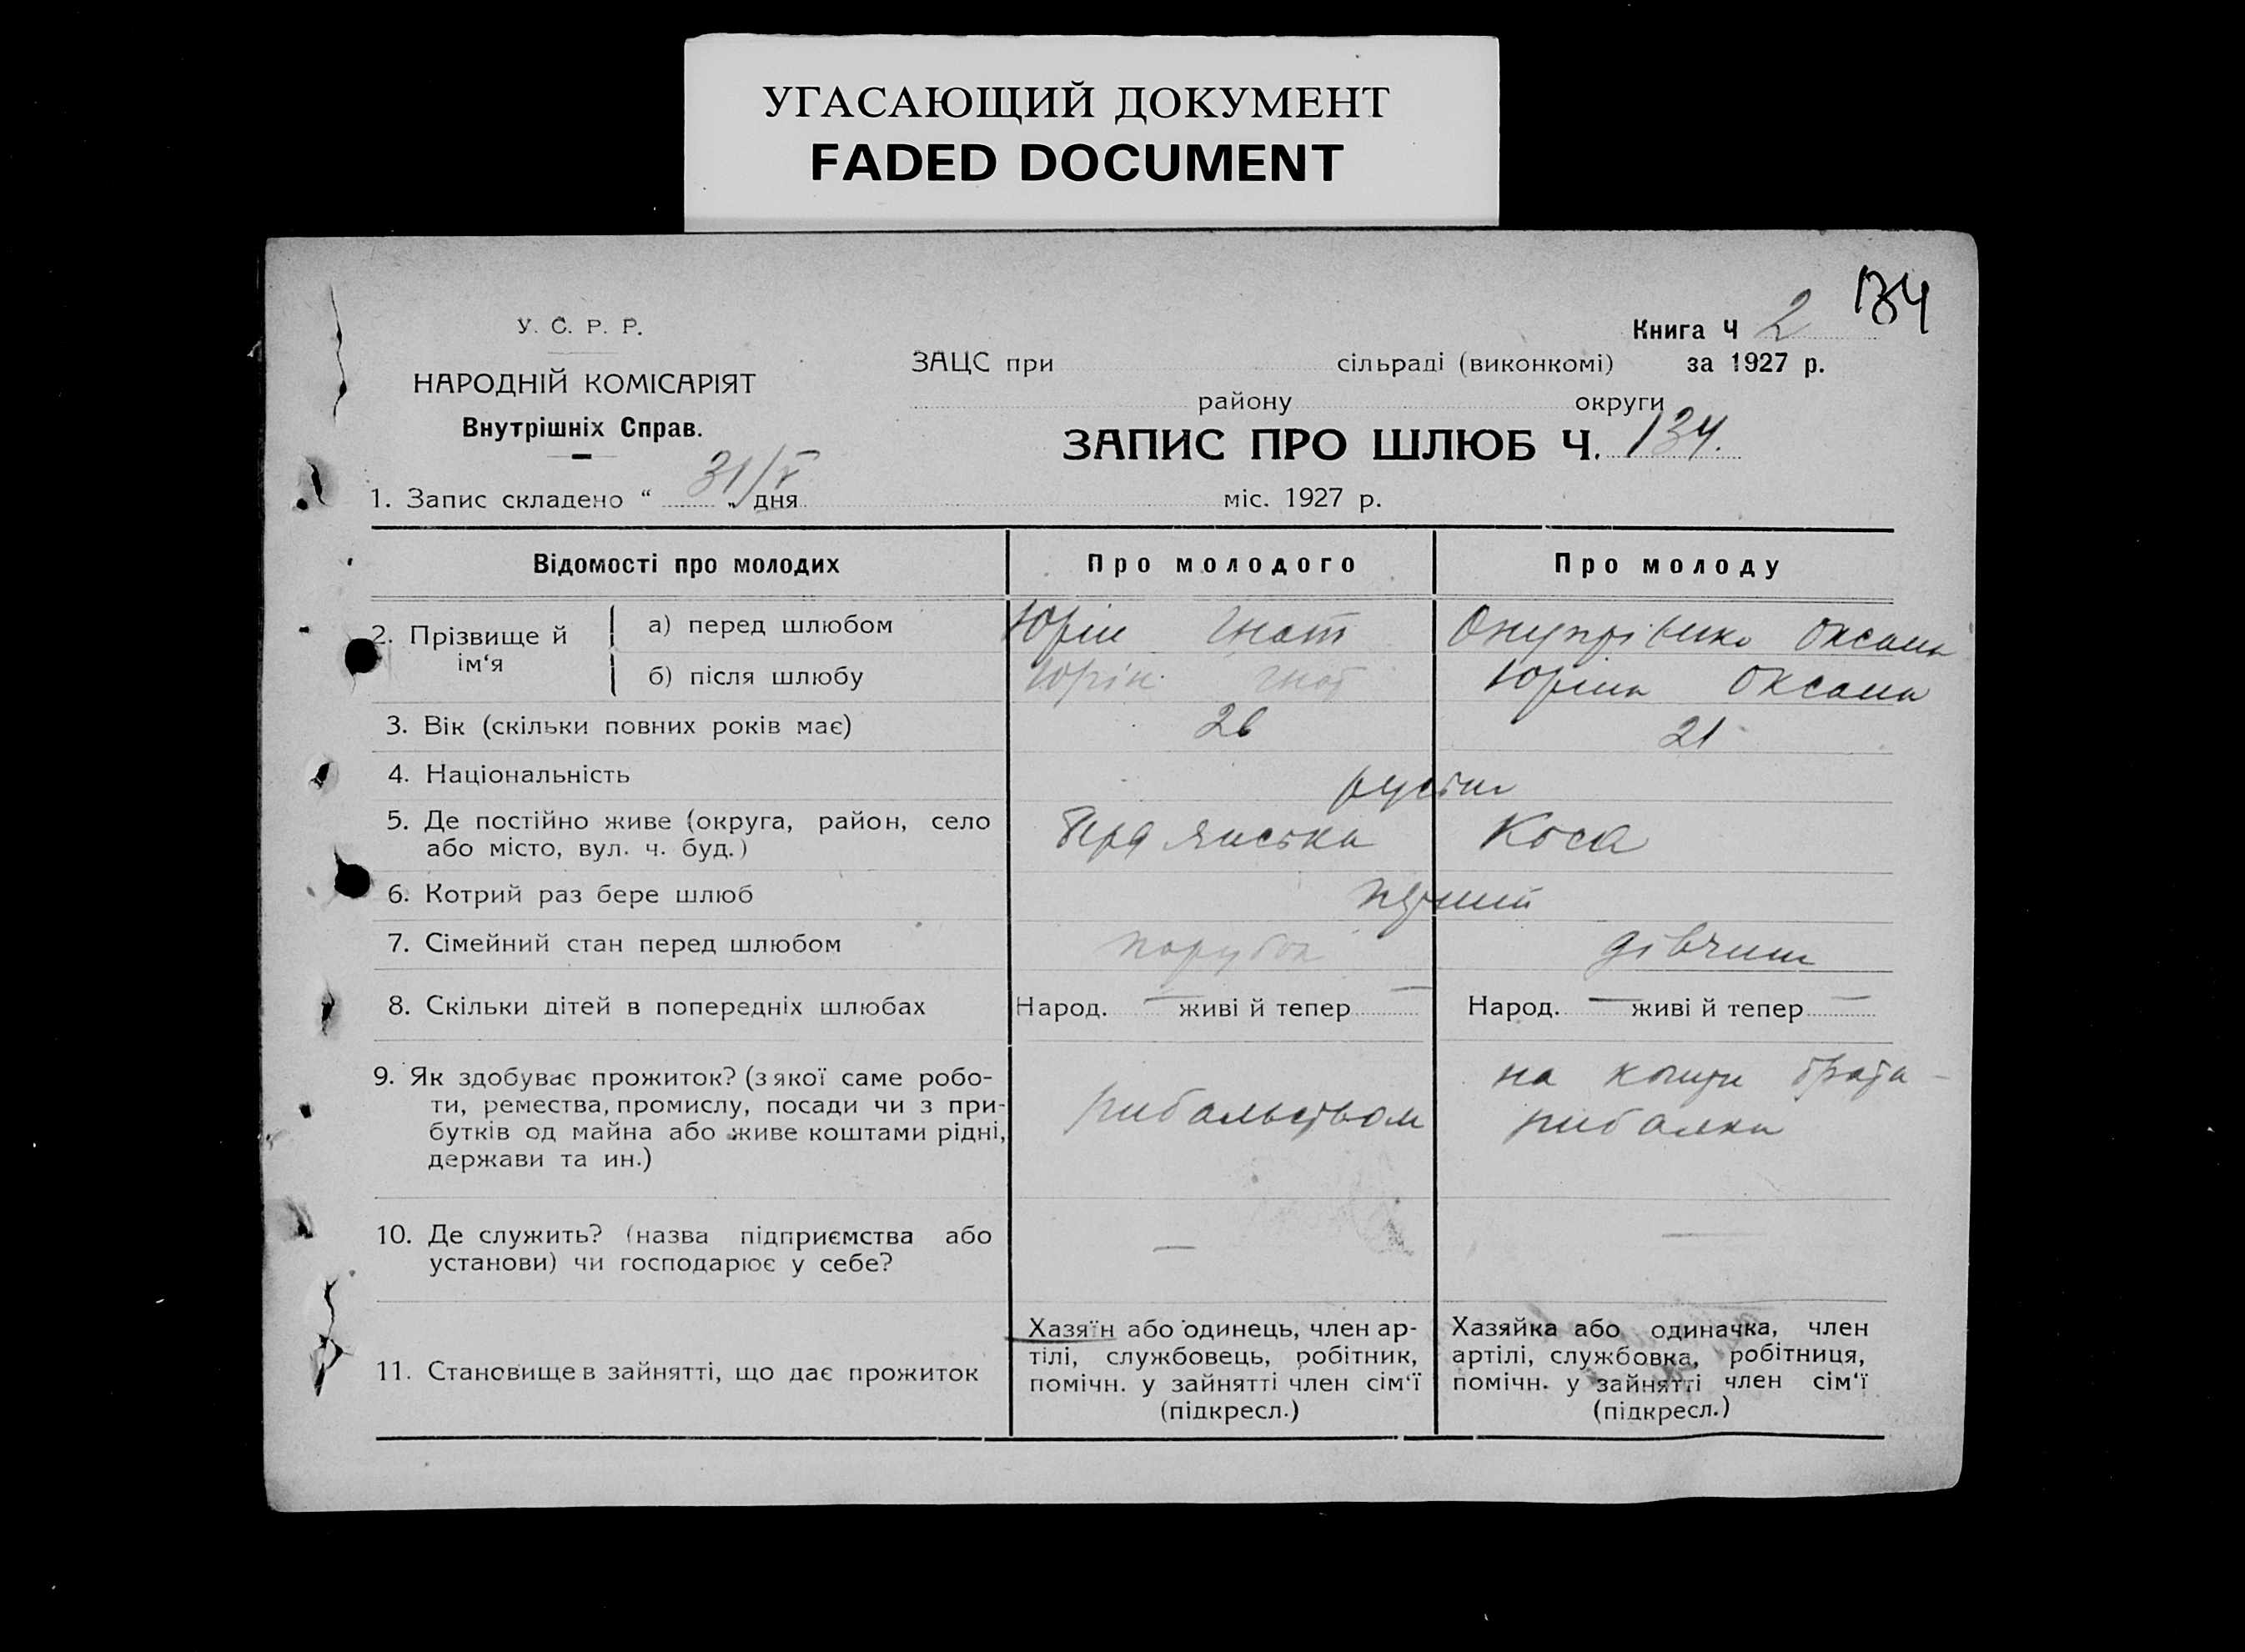 УГАСАЮЩИЙ ДОКУМЕНТ
FADED DOCUMENT
134
У. С. Р. Р.
НАРОДНІЙ КОМІСАРІЯТ
Внутрішніх Справ.
Книга Ч 2
ЗАЦС при сільраді (виконкомі) за 1927 р.
району округи
ЗАПИС ПРО ШЛЮБ Ч. 134.
1. Запис складено “ 31/V „ дня міс. 1927 р.
Відомості про молодих Про молодого Про молоду
2. Прізвище й ім‘я
а) перед шлюбом Юрін Гнат Онупрієнко Оксана
б) після шлюбу Юрін Гнат Юріна Оксана
3. Вік (скільки повних років має) 26 21
4. Національність
5. Де постійно живе (округа, район, село
або місто, вул. ч. буд.) Бердянська Коса
6. Котрий раз бере шлюб перший
7. Сімейний стан перед шлюбом парубок дівчина
8. Скільки дітей в попередніх шлюбах Народ. — живі й тепер — Народ. — живі й тепер —
9. Як здобуває прожиток? (з якої саме робо-
ти, ремества, промислу, посади чи з при-
бутків од майна або живе коштами рідні,
держави та ин.)
рибальством
на кошти брата -
рибалки
10. Де служить? (назва підприємства або
установи) чи господарює у себе?
— —
11. Становище в зайнятті, що дає прожиток
Хазяїн або одинець, член ар-
тілі, службовець, робітник,
помічн. у зайнятті член сім‘ї
(підкресл.)
Хазяйка або одиначка, член
артілі, службовка, робітниця,
помічн. у зайнятті член сім‘ї
(підкресл.)